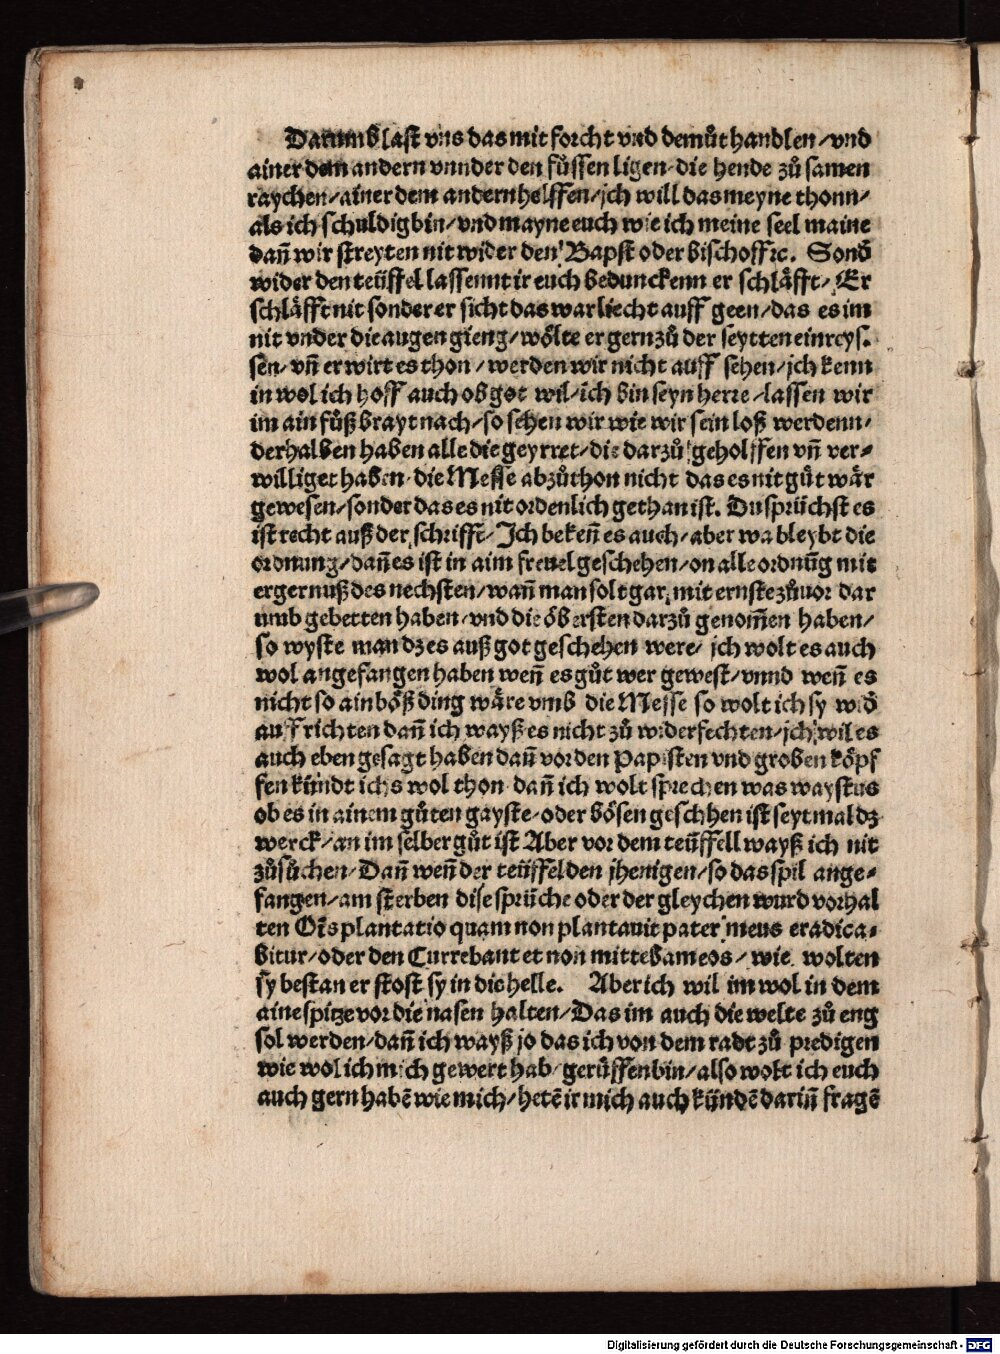 Darumb last vns das mit forcht vnd demůt handlen / vnd
ainer dem andern vnnder den fůssen ligen / die hende zů samen
raychen / ainer dem andern helffen / jch will das meyne thonn /
als ich schuldig bin / vnd mayne euch wie ich meine seel maine
dañ wir streyten nit wider den Bapst oder bischoff ꝛc. Sond̄
wider den teüffel lassennt ir euch bedunckenn er schläfft / Er
schläfft nit sonder er sicht das war liecht auff geen / das es im
nit vnder die augen gieng / wölte er gern zů der seytten einreys⸗
sen / vñ er wirt es thon / werden wir nicht auff sehen / jch kenn
in wol ich hoff auch ob got wil / ich bin seyn herre / lassen wir
im ain fůß brayt nach / so sehen wir wie wir sein loß werdenn /
derhalben haben alle die geyrret / die darzů geholffen vñ ver⸗
williget haben / die Messe abzůthon nicht das es nit gůt wär
gewesen / sonder das es nit ordenlich gethan ist. Du sprüchst es
ist recht auß der schrifft / Ich bekeñ es auch / aber wa bleybt die
ordnung / dañ es ist in aim freuel geschehen / on alle ordnūg mit
ergernuß des nechsten / wañ man solt gar mit ernste zůuor dar
umb gebetten haben / vnd die öbersten darzů genom̄en haben /
so wyste man dz es auß got geschehen were / jch wolt es auch
wol angefangen haben weñ es gůt wer gewest / vnnd weñ es
nicht so ain böß ding wäre vmb die Messe so wolt ich sy wid̄
auffrichten dañ ich wayß es nicht zů widerfechten / jch wil es
auch eben gesagt haben dañ vor den Papisten vnd groben köpf
fen kündt ichs wol thon dañ ich wolt sprechen was waystus
ob es in ainem gůten gayste / oder bösen geschhen ist seytmal dz
werck / an im selber gůt ist Aber vor dem teüffell wayß ich nit
zůsůchen / Dañ weñ der teüffel den jhenigen / so das spil ange⸗
fangen / am sterben dise sprüche oder der gleychen wurd vorhal
ten Oīs plantatio quam non plantauit pater meus eradica⸗
bitur / oder den Currebant et non mittebam eos / wie wolten
sy bestan er stost sy in die helle. Aber ich wil im wol in dem
aine spitze vor die nasen halten / Das im auch die welte zů eng
sol werden / dañ ich wayß jo das ich von dem radt zů predigen
wie wol ich mich gewert hab / gerůffen bin / also wolt ich euch
auch gern habē wie mich / hetē ir mich auch kündē dariñ fragē
Digitalisierung gefördert durch die Deutsche Forschungsgemeinschaft - DFG